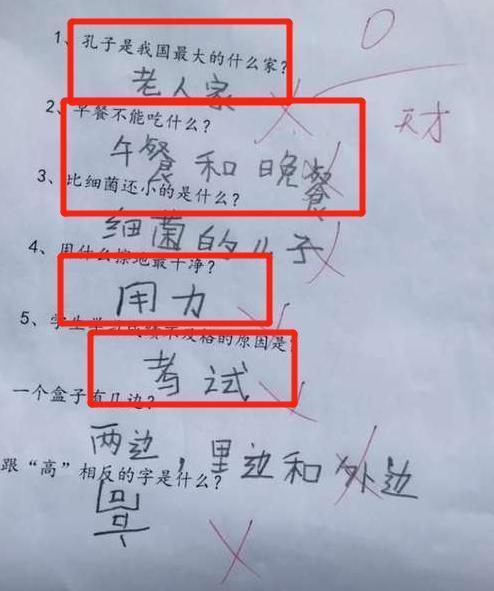 0
1、孔子是我国最大的什么家？
老人家
天才
2、早餐不能吃什么？
午餐和晚餐
3、比细菌还小的是什么？
细菌的儿子
4、用什么擦地最干净？
用力
5、学生 不及格的原因是？
考试
一个盒子有几边？
两边，里边和外边
跟“高”相反的字是什么？